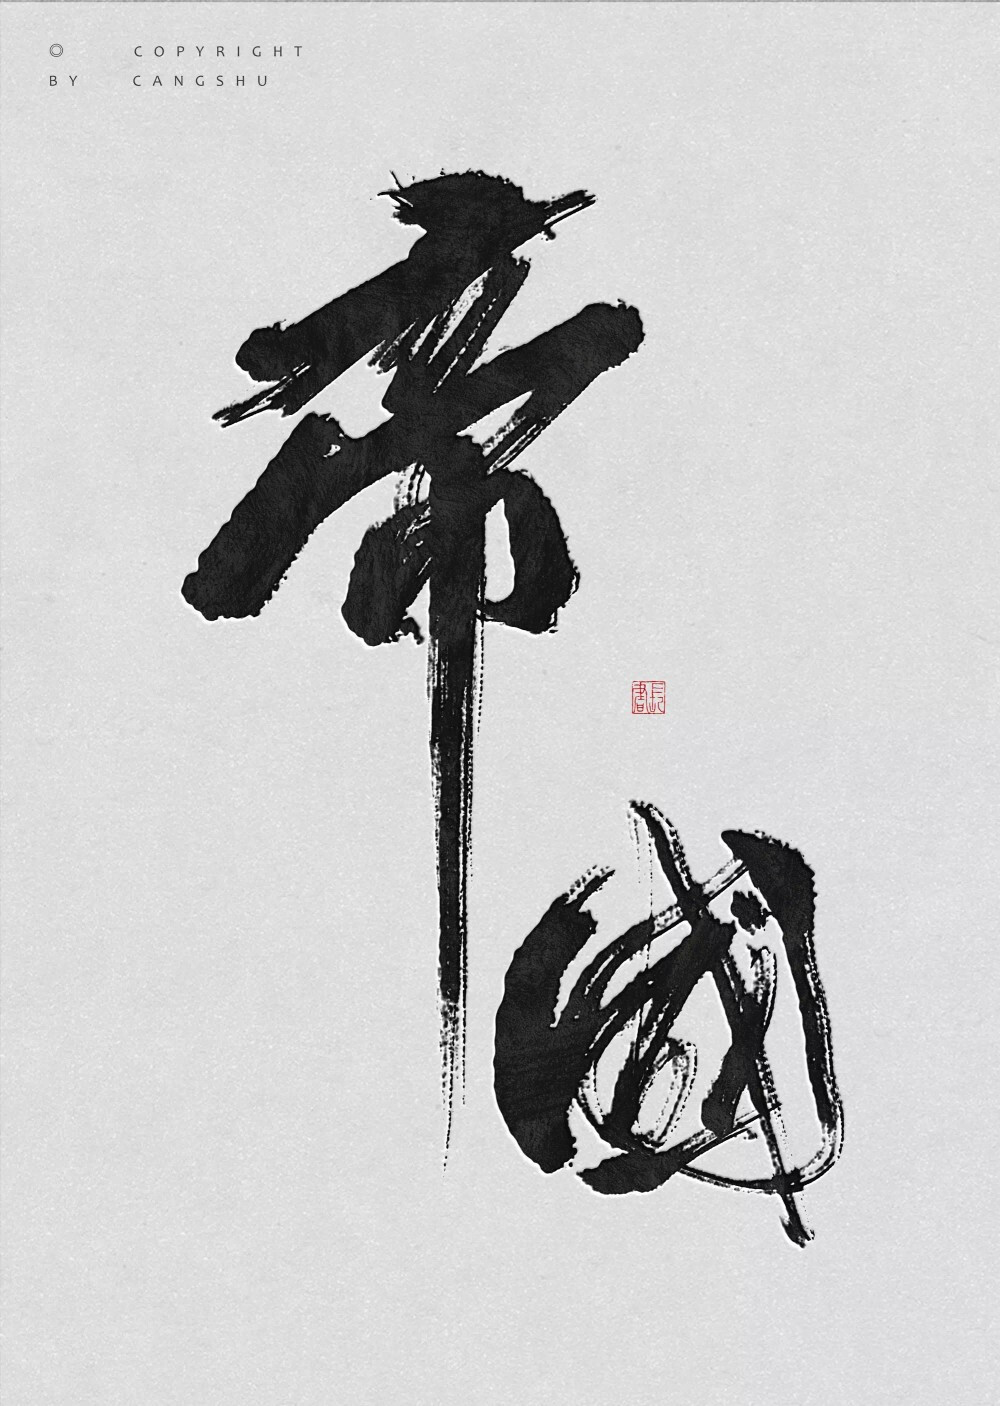 © COPYRIGHT
BY CANGSHU
帝
國